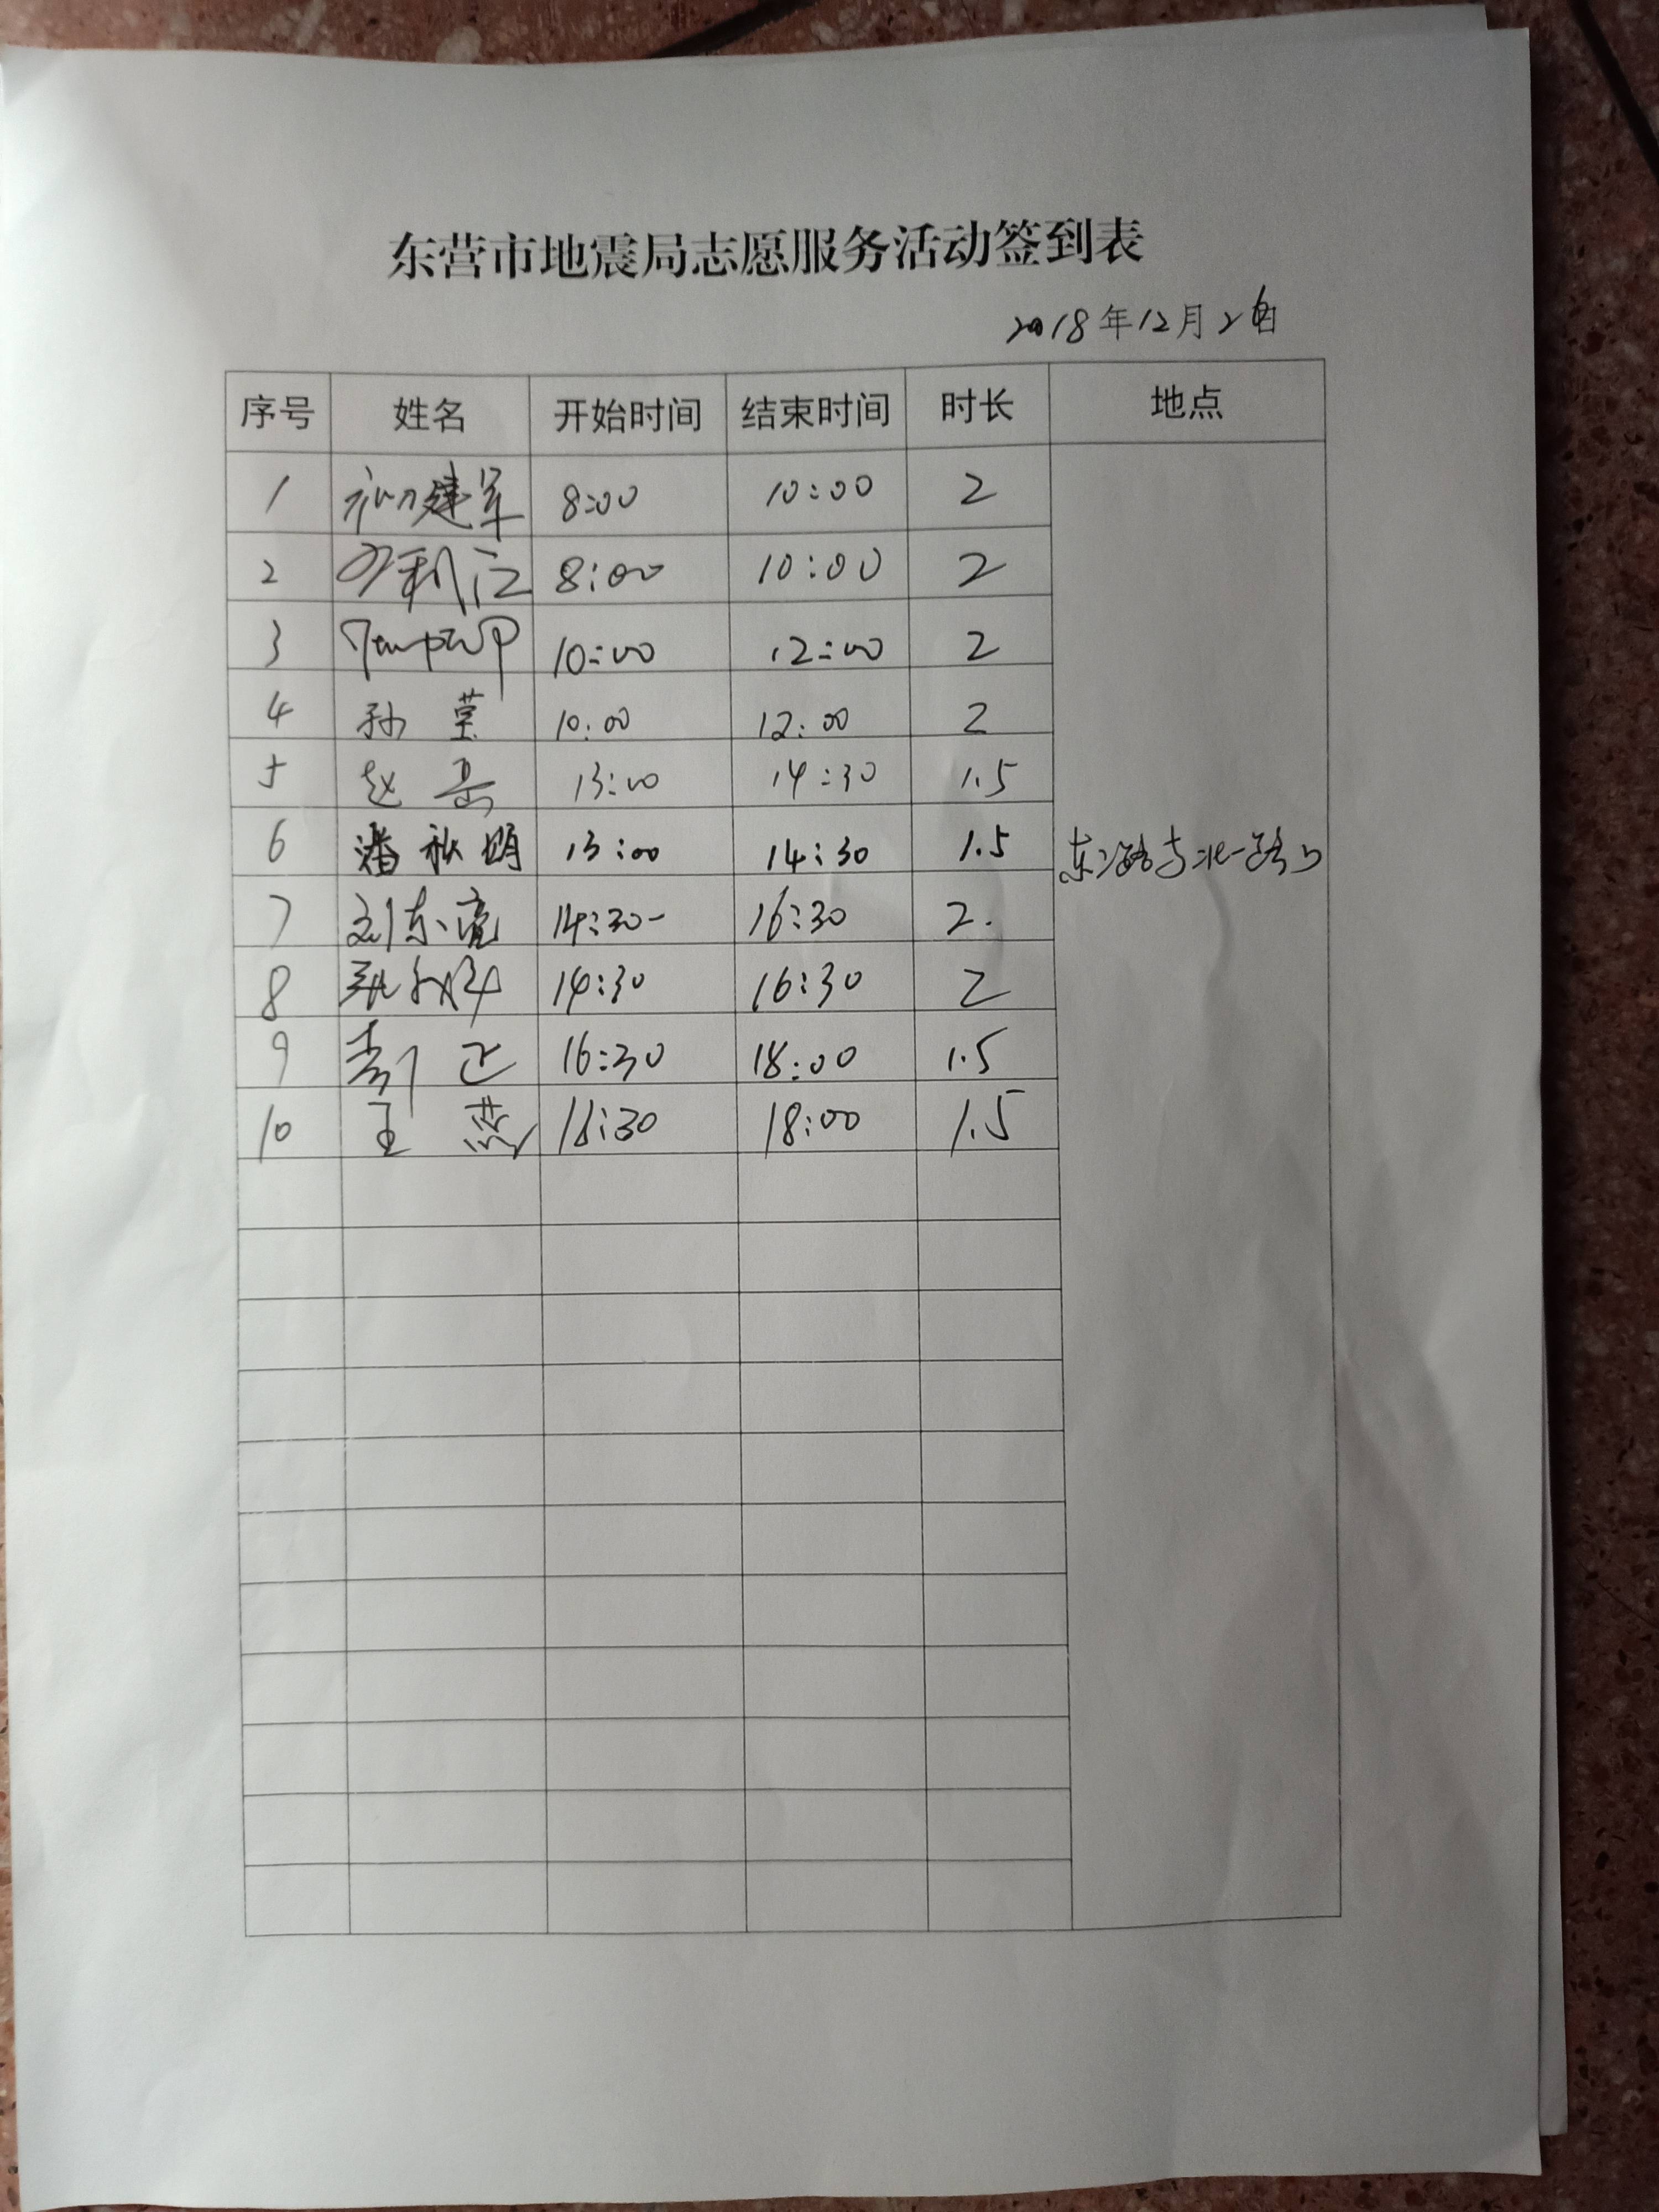 东营市地震局志愿服务活动签到表
2018年12月26日
序号 姓名 开始时间 结束时间 时长 地点
1 初建军 8:00 10:00 2
2 利江 8:00 10:00 2
3 10:00 12:00 2
4 孙莹 10:00 12:00 2
5 赵磊 13:00 14:30 1.5
6 潘秋明 13:00 14:30 1.5 东二路与北一路口
7 刘东亮 14:30- 16:30 2.
8 14:30 16:30 2
9 李正 16:30 18:00 1.5
10 王燕 16:30 18:00 1.5